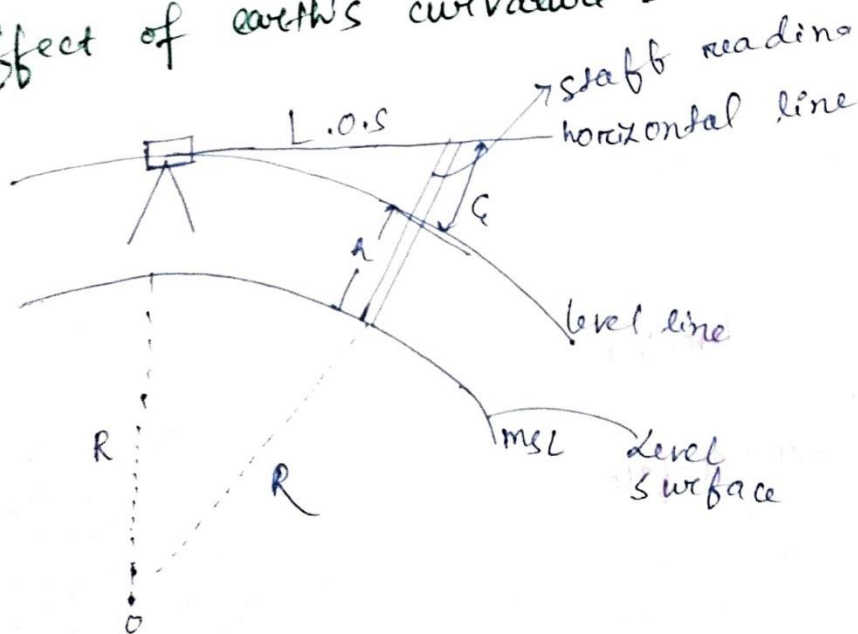 effect of earth's curvature
staff reading
L.O.S
horizontal line
C
h
level line
R
R
MSL
Level
surface
O